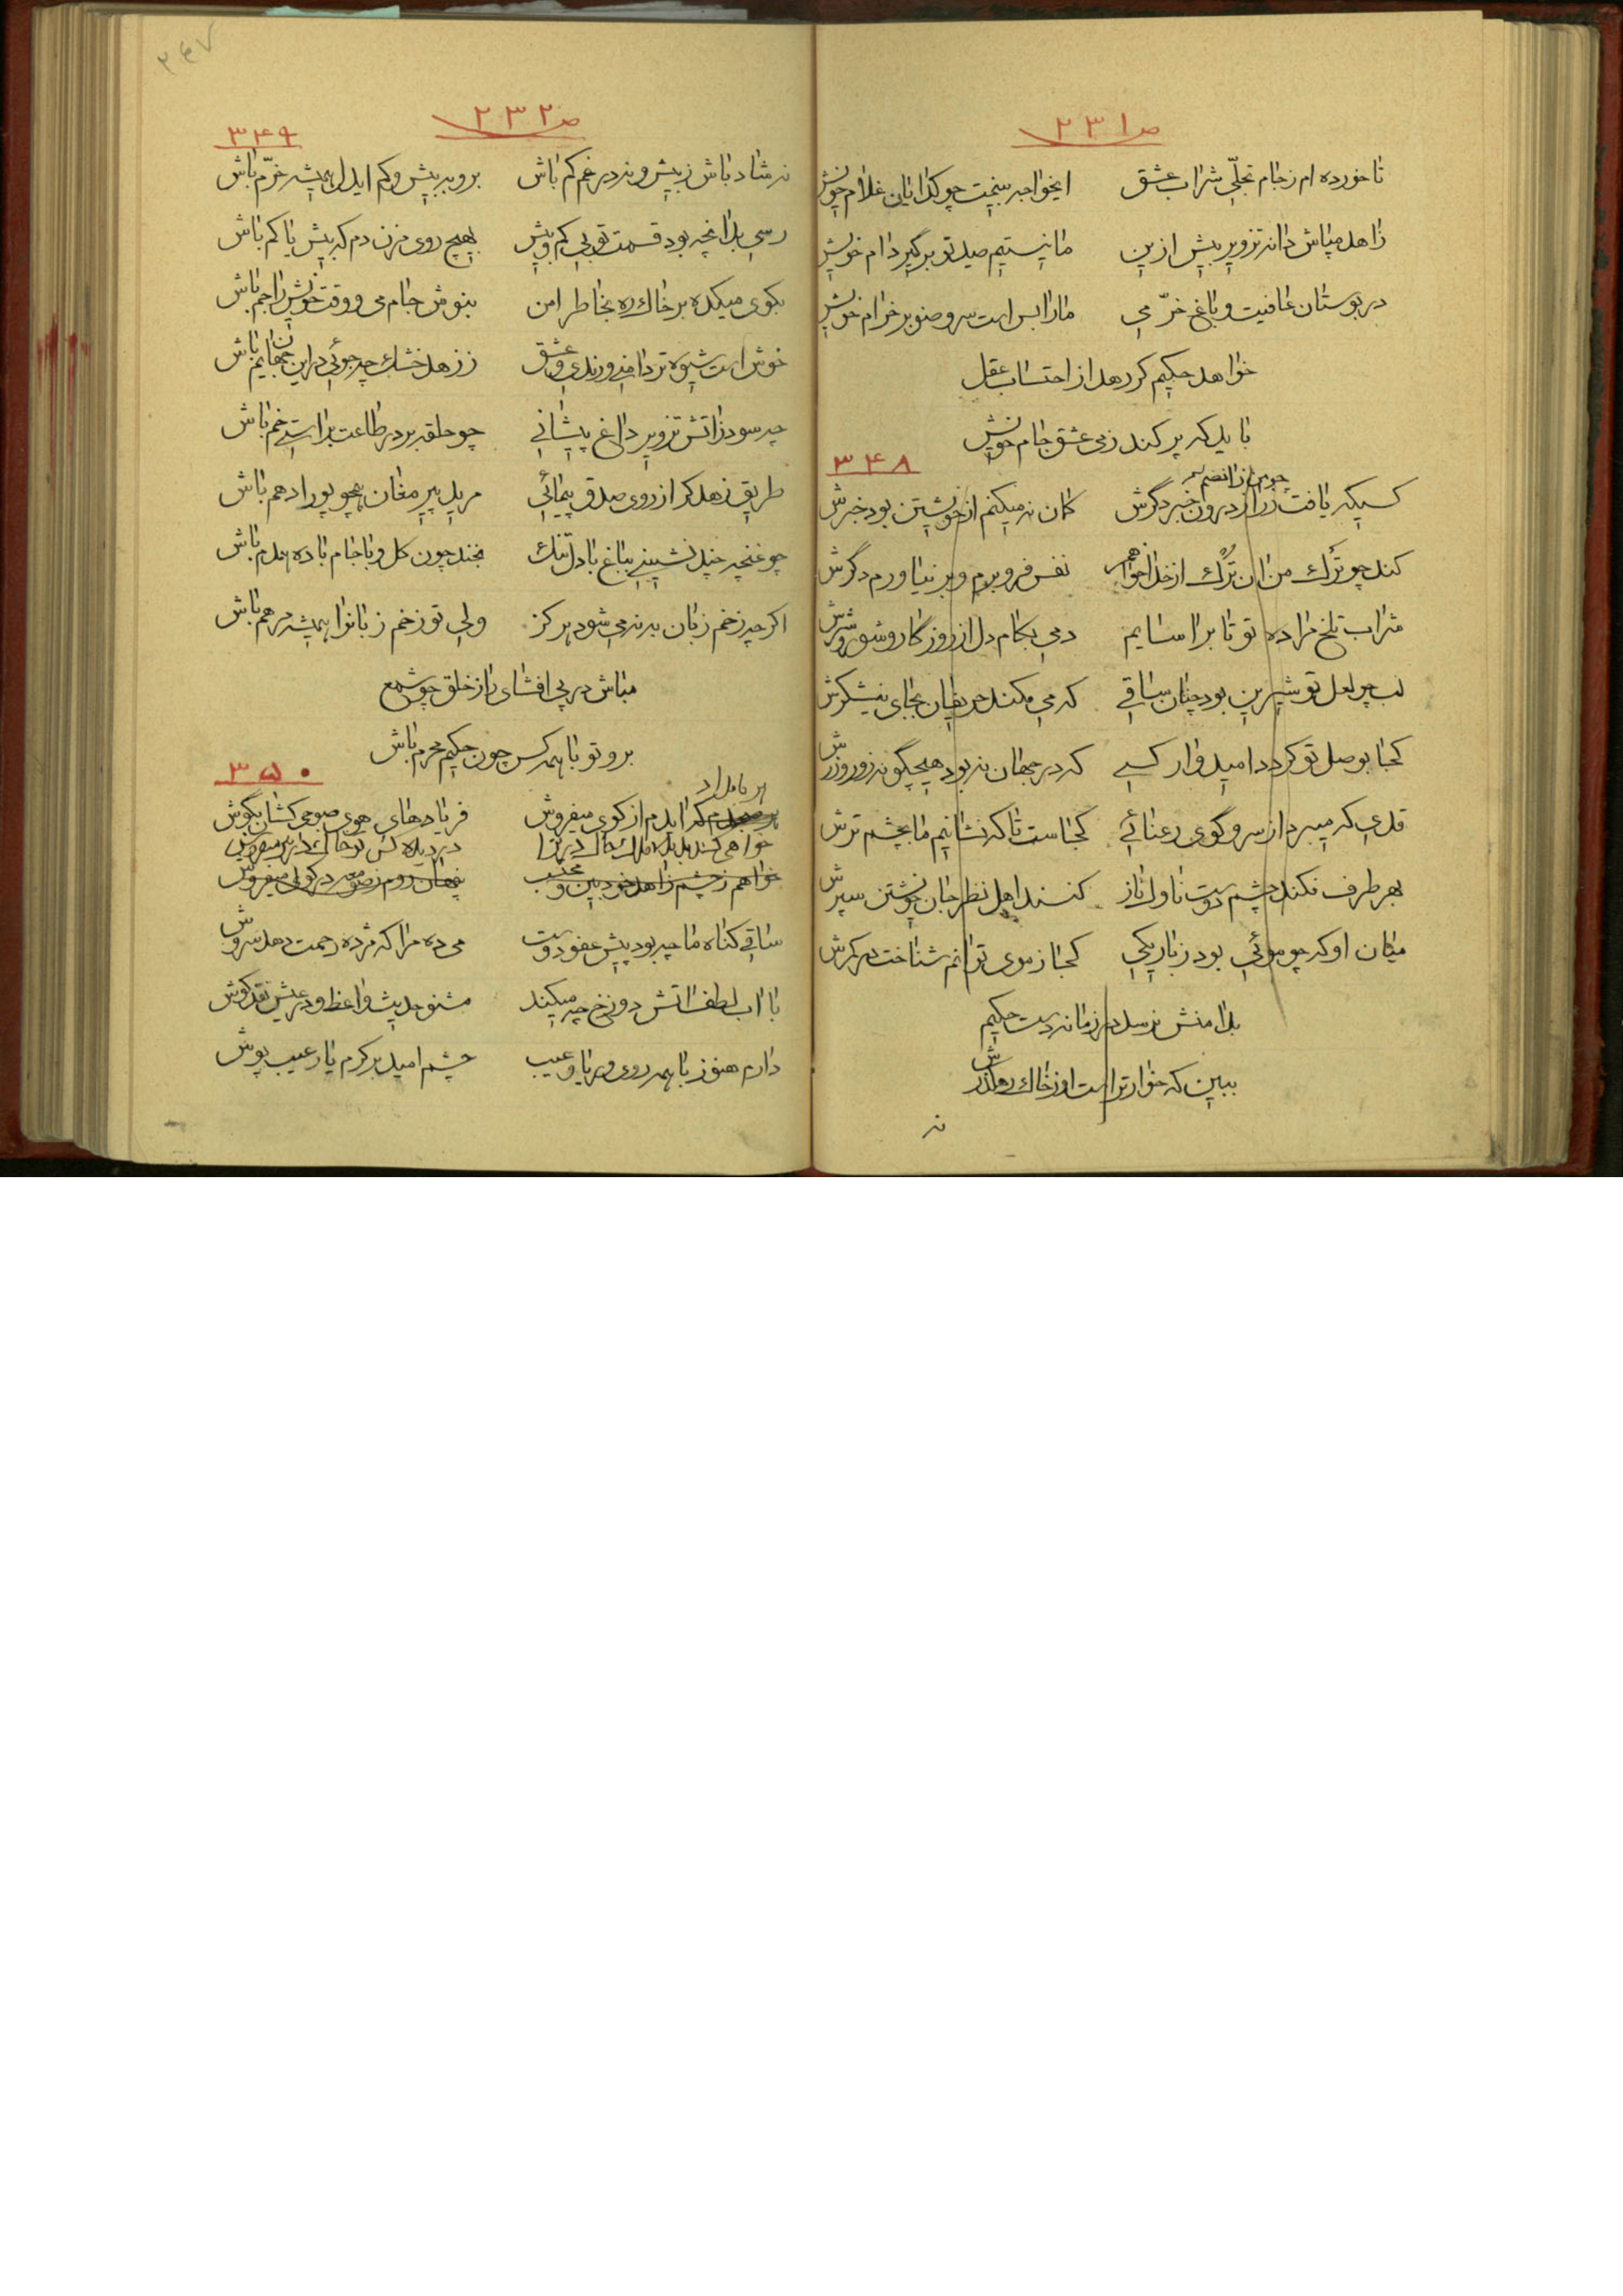 ص ۲۳۱
تا خورده ام ز جام تجلّی شراب عشق ایخواجه بینمت چو گدایان غلام خویش
زاهد مپاش دانه تزویر بیش ازین ما نیستیم صید تو برگیر دام خویش
در بوستان عافیت و باغ خرّمی ما را بس است سرو صنوبر خرام خویش
خواهد حکیم گر رهد از احتساب عقل
باید که پر کند ز می عشق جام خویش
۳۴۸
کسیکه یافت ز راز درون خبر دگرش گمان نه میکنم از خویشتن بود خبرش
کند چو تَرک من آن تُرک از خدا خواهم نفس فرو برم و بر نیاورم دگرش
شراب تلخ مرا ده تو تا براسایم دمی بکام دل از روزگار و شور و شرش
لب چو لعل تو شیرین بود چنان ساقی که می مکند حریفان بجای نیشکرش
کجا بوصل تو گردد امیدوار کسی که در جهان نه بود هیچگونه زور و زرش
قدی که میبرد از سرو گوی رعنائی کجاست تا که نشانیم ما بچشم ترش
بهر طرف فکند چشم دوست ناوک ناز کنند اهل نظر جان خویشتن سپرش
میان او که چو موئی بود ز باریکی کجا ز موی توانم شناخت در کمرش
بدامنش نرسد در زمانه دست حکیم
ببین که خوارتر است او ز خاک رهگذرش
نه
۲۴۷
ص ۲۳۲
۳۴۹
نه شاد باش ز بیش و نه در غم کم باش برو به بیش و کم ایدل همیشه خرّم باش
رسی بدانچه بود قسمت تو بی کم و بیش بهیچ روی مزن دم که بیش یا کم باش
بکوی میکده بر خاک ره بخاطر امن بنوش جام می و وقت خویش را جم باش
خوش است شیوه تردامنی و رندی و عشق ز زهد خشک چه جوئی در این جهان یم باش
چه سود ز آتش تزویر داغ پیشانی چو حلقه بر در طاعت براستی خم باش
طریق زهد گر از روی صدق پیمائی مرید پیر مغان همچو پور ادهم باش
چو غنچه چند نشینی بباغ با دل تنگ بخند چون گل و با جام باده همدم باش
اگر چه زخم زبان به نمی شود هرگز ولی تو زخم زبانرا همیشه مرهم باش
مباش در پی افشای راز خلق چو شمع
برو تو با همه کس چون حکیم محرم باش
۳۵۰
هر بامداد
کاید م از کوی میفروش فریادهای هوی صبوحی کشان بگوش
خواهم ز چشم زاهد خودبین و محتسب پنهان روم در کوی میفروش
ساقی گناه ما چه بود پیش عفو دوست می ده مرا که مژده رحمت دهد سروش
با آب لطف آتش دوزخ چه میکند مشنو حدیث واعظ و در عیش نقد کوش
دارم هنوز با همه روی و ریا و عیب چشم امید بر کرم یار عیب پوش